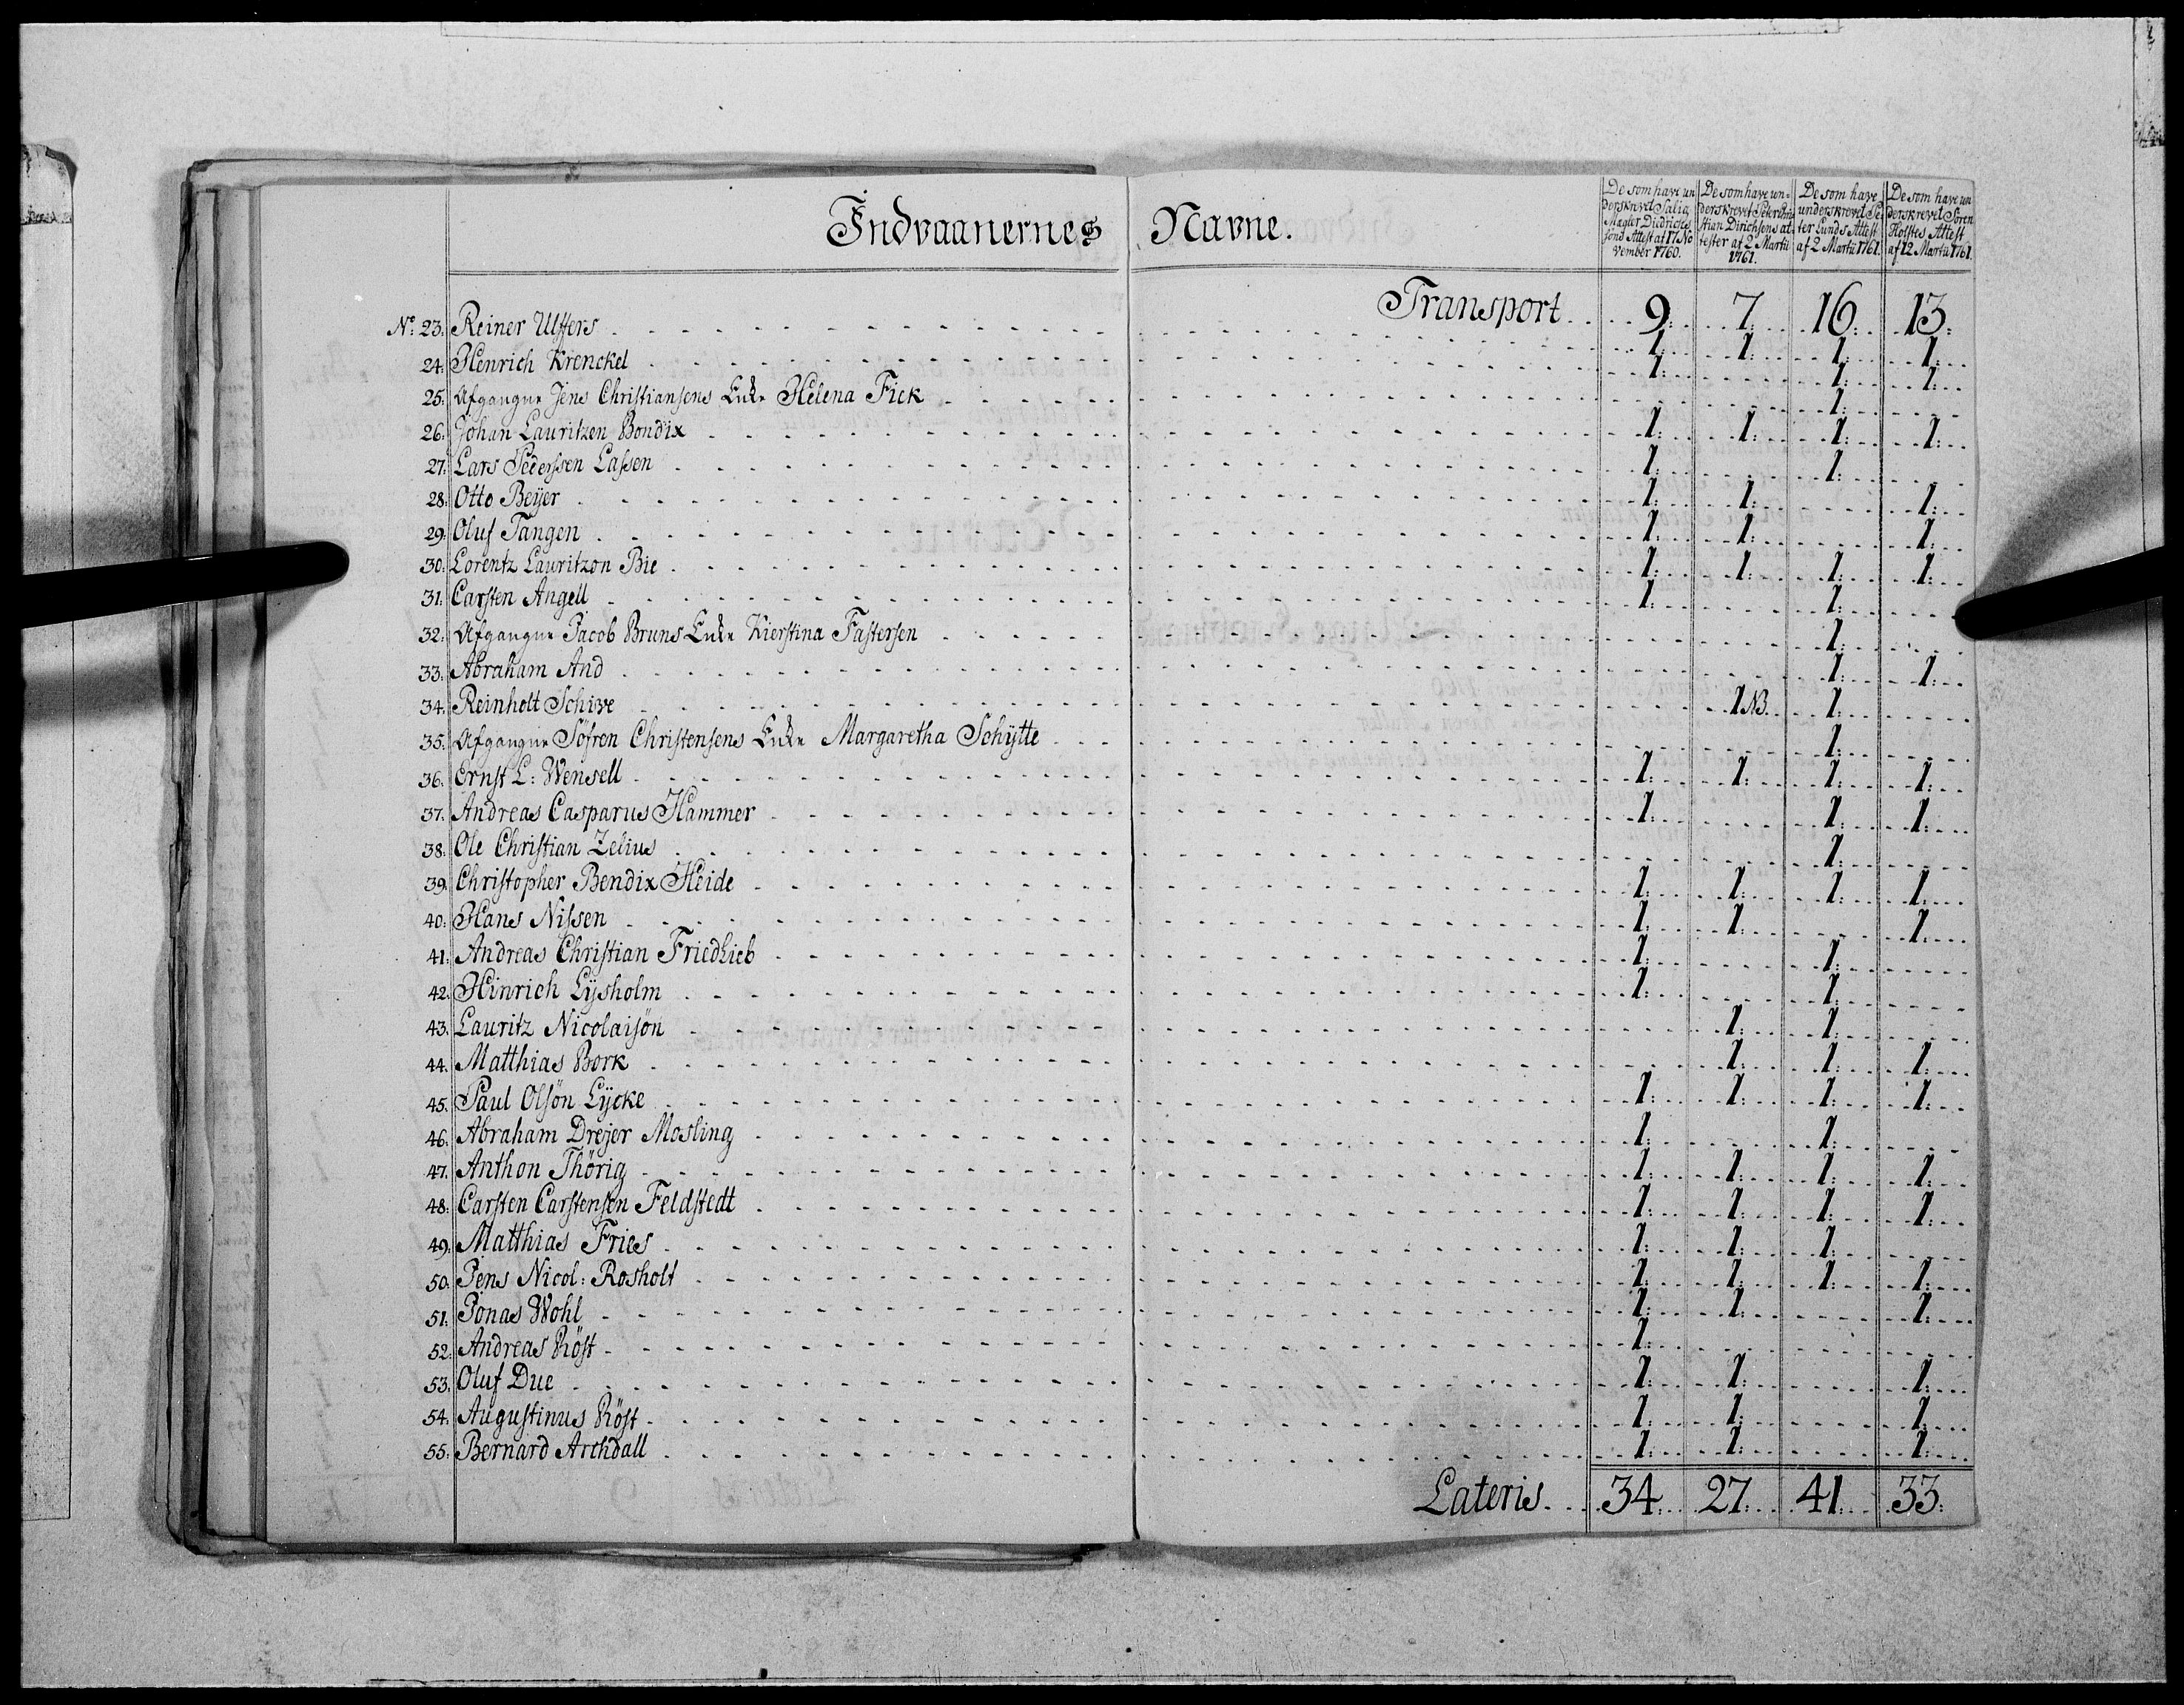 Indvaanernes Navne.
De som have un
derskrevet Salig
Mægler Diedrich
sens Attest af 17 No
vember 1760.
De som have un-
derskrevet Peter Chri
stian Dirichsens at-
tester af 2 Martii
1761.
De som have
underskrevet Pe-
ter Lunds Attest
af 2 Martii 1761.
De som have un
derskrevet Søren
Holstes Attest
af 12 Martii 1761.
Transport 9: 7: 16: 13:
No: 23: Reiner Ulffers 1: 1: 1: 1:
24: Henrich Krenckel 1: 1: 1:
25: Afgangne Jens Christiansens Enke Helena Fick 1:
26: Johan Lauritzen Bondix 1: 1: 1: 1:
27: Lars Pederssen Lassen 1: 1:
28: Otto Beÿer 1: 1: 1:
29: Oluf Tangen 1: 1: 1:
30: Lorentz Lauritzon Bie 1: 1: 1: 1:
31: Carsten Angell 1: 1:
32: Afgangne Jacob Bruns Enke Kierstina Fastersen 1:
33: Abraham And 1: 1:
34: Reinholt Schive 1 NB. 1:
35: Afgangne Söfren Christensens Enke Margaretha Schÿtte 1:
36: Ernst L: Wensell 1: 1: 1: 1:
37. Andreas Casparus Hammer 1: 1: 1:
38: Ole Christian Zelius 1:
39: Christopher Bendix Heide 1: 1: 1: 1:
40: Hans Nissen 1: 1: 1:
41: Andreas Christian Friedlieb 1: 1:
42: Hinrich Lÿsholm 1: 1:
43: Lauritz Nicolaisön 1: 1:
44: Matthias Bork 1: 1: 1:
45: Paul Olsön Lÿcke 1: 1: 1: 1:
46: Abraham Dreÿer Mosling 1: 1:
47: Anthon Thörig 1: 1: 1: 1:
48: Carsten Carstensen Feldstedt 1: 1: 1: 1:
49: Matthias Fries 1: 1: 1:
50: Jens Nicol: Rosholt 1: 1: 1: 1:
51: Jonas Wohl 1: 1: 1:
52: Andreas Röst 1:
53: Oluf Due 1: 1: 1:
54: Augustinus Röst 1: 1: 1:
55: Bernard Archdall 1: 1: 1:
Lateris 34: 27: 41: 33: